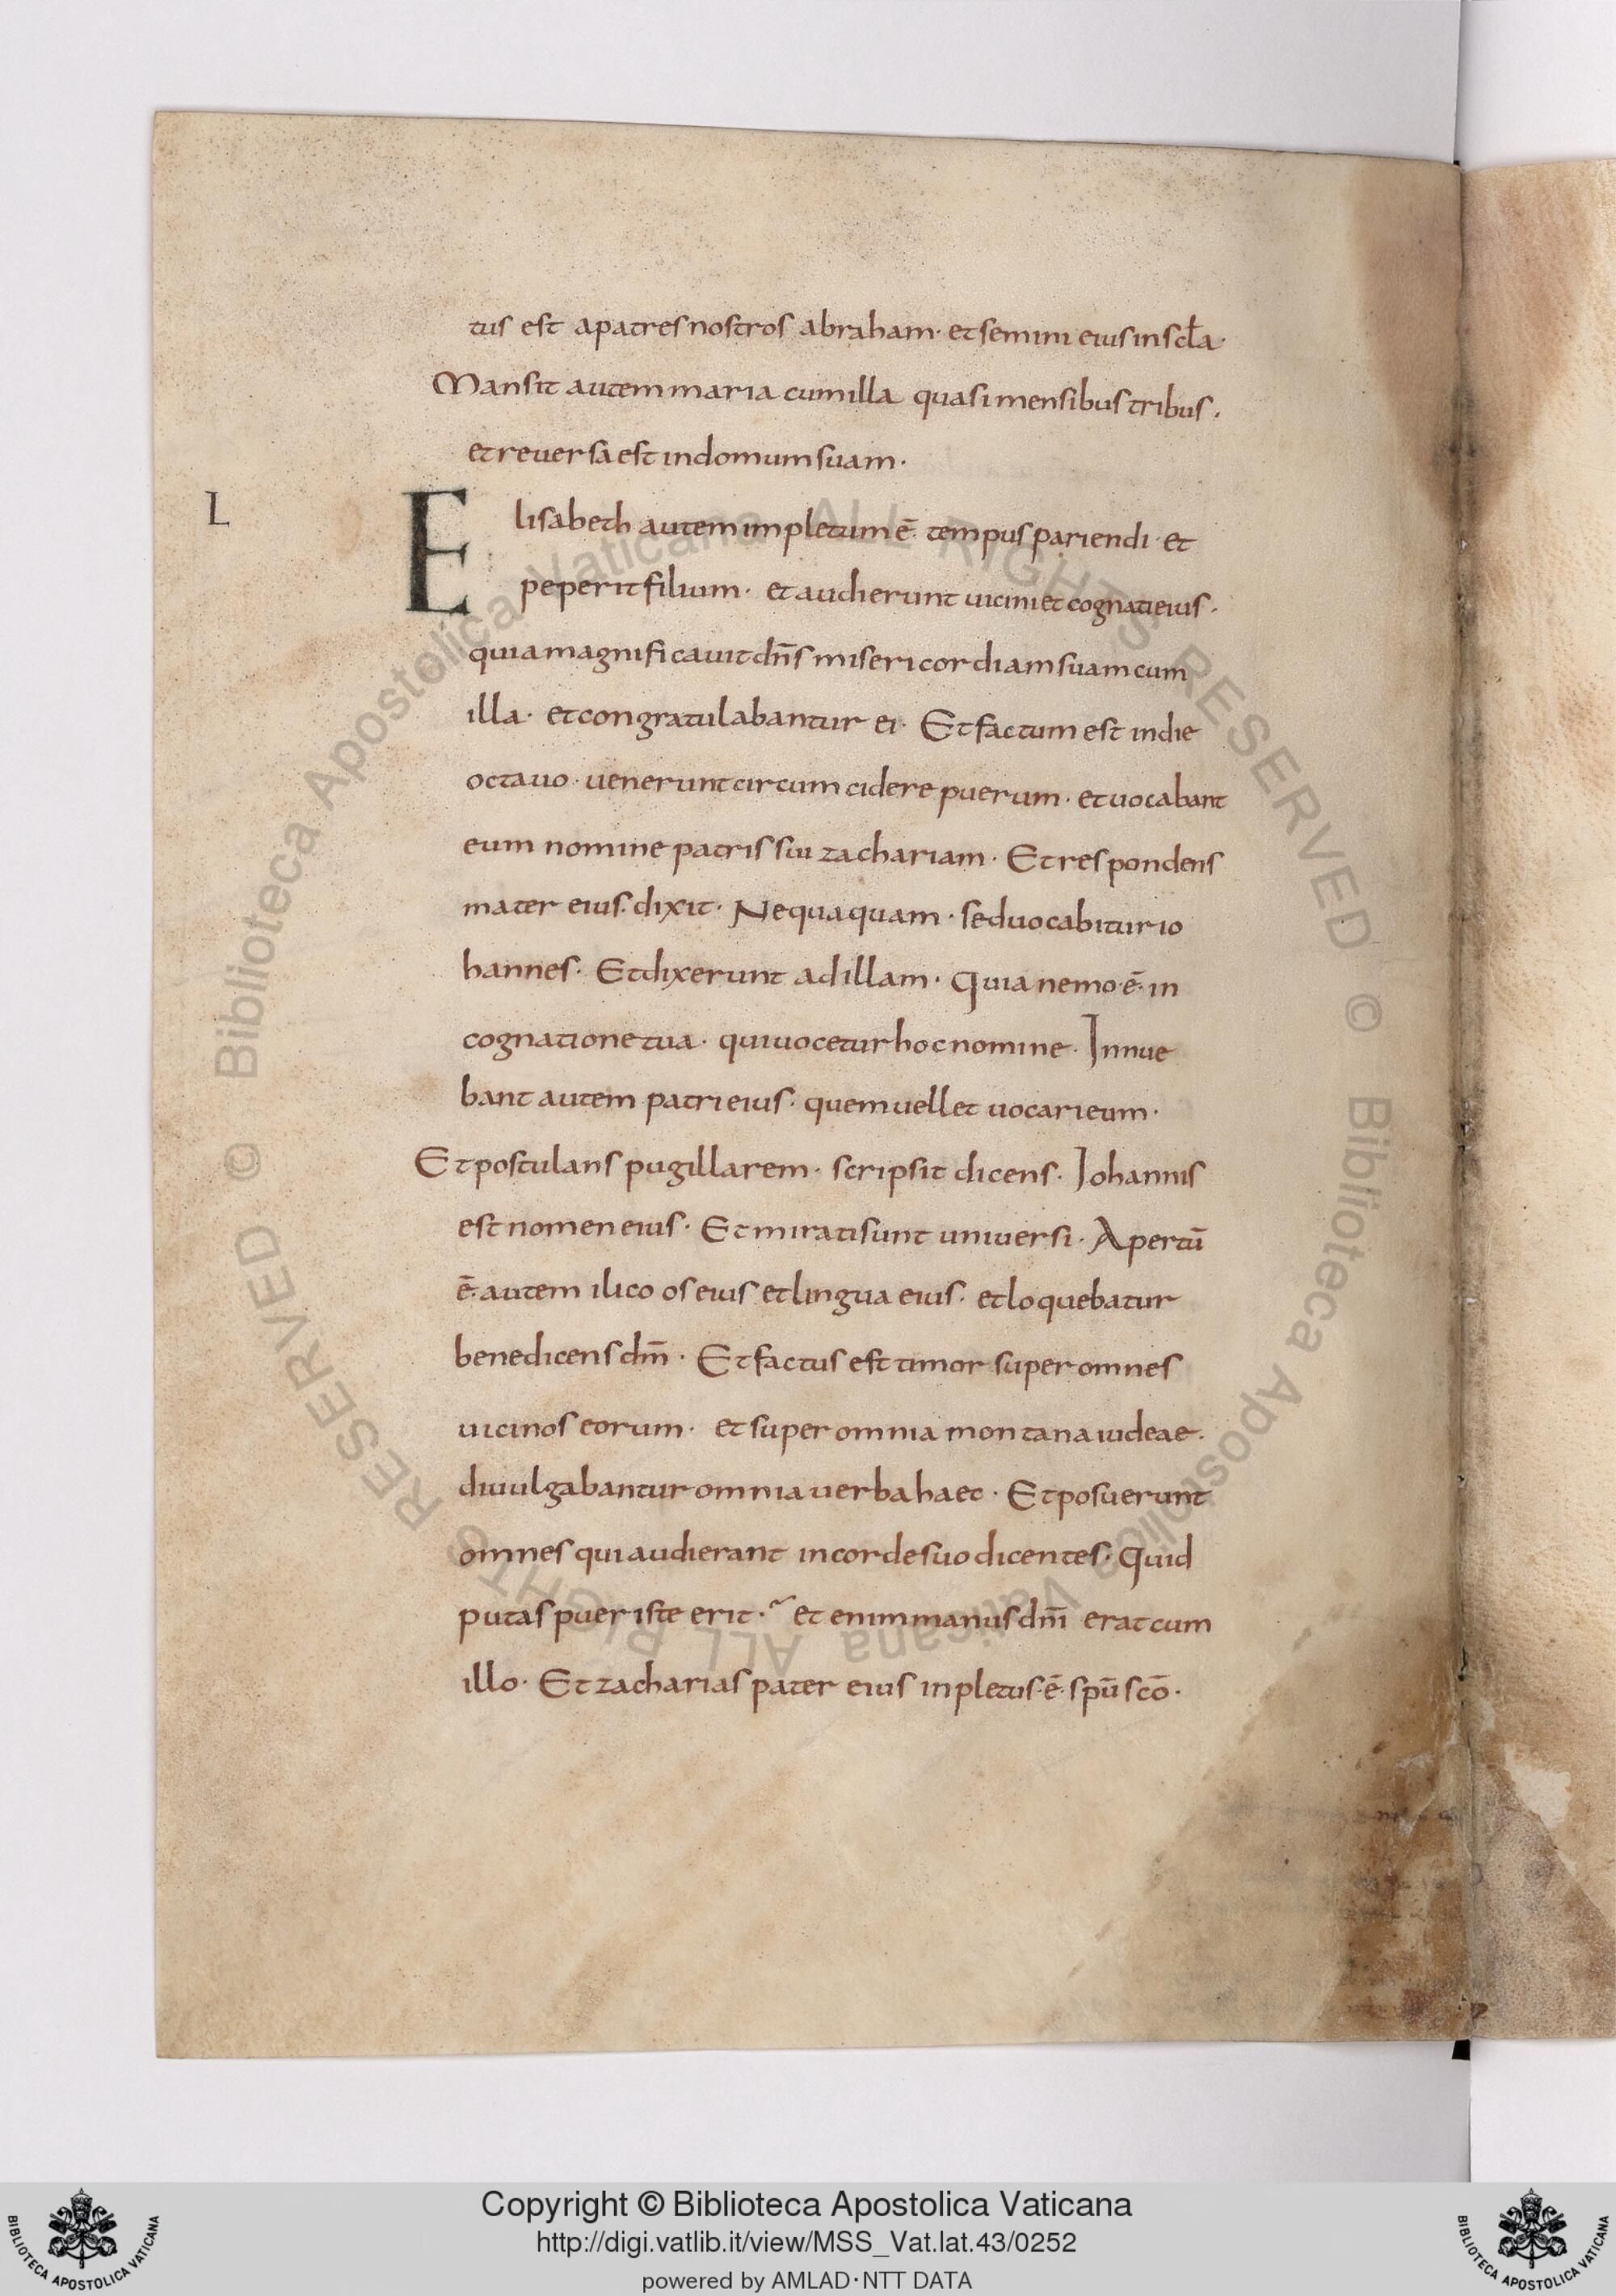 tus est apatresnostros abraham· etsemini eiusinscl̄a·
Mansit autemmaria cumilla quasimensibustribus·
etreuersaest indomumsuam·
L
Elisabeth autemimpletumē· tempuspariendi· et
peperitfilium· etaudierunt uicinietcognatieius·
quiamagnificauitdn̄s misericordiamsuamcum
illa· etcongratulabantur ei· Etfactumest indie
octauo· uenerunt circumcidere puerum· etuocabant
eum nomine patris sui zachariam· Etrespondens
mater eius· dixit· Nequaquam· seduocabiturio
hannes· Etdixerunt adillam· Quianemo·ē· in
cognationetua· quiuoceturhocnomine· Innue
bant autem patrieius· quemuellet uocarieum·
Etpostulans pugillarem· scripsit dicens· Iohannis
est nomeneius· Etmiratisunt uniuersi· Apertū
ē·autem ilico oseius etlingua eius· etloquebatur
benedicens dm̄· Etfactus est timor superomnes
uicinos eorum· et superomnia montana iudeae·
diuulgabantur omniauerbahaec· Etposuerunt
omnes quiaudierant incordesuodicentes· Quid
putaspueriste erit·~ et enimmanusdn̄i eratcum
illo· Etzacharias pater eius inpletus·ē· spū scō·
Copyright © Biblioteca Apostolica Vaticana
http://digi.vatlib.it/view/MSS_Vat.lat.43/0252
powered by AMLAD·NTT DATA
BIBLIOTECA APOSTOLICA VATICANA
BIBLIOTECA APOSTOLICA VATICANA
© Biblioteca Apostolica Vaticana ALL RIGHTS RESERVED
© Biblioteca Apostolica Vaticana ALL RIGHTS RESERVED